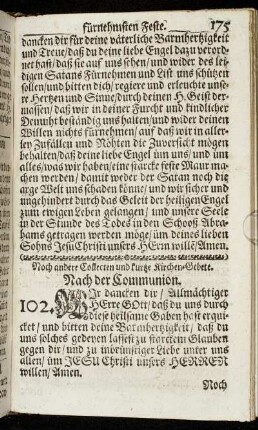 fürnehmsten Feste. 175
dancken dir für deine väterliche Barmhertzigkeit
und Treue/daß du deine liebe Engel dazu verord-
net hast/ daß sie auf uns sehen/ und wider des lei-
digen Satans Fürnehmen und List uns schützen
sollen/und bitten dich/ regiere und erleuchte unse-
re Hertzen und Sinne/durch deinen H. Geist der-
massen/ daß wir in deiner Furcht und kindlicher
Demuht beständig uns halten/und wider deinen
Willen nichts fürnehmen/ auf daß wir in aller-
ley Zufällen und Nöhten die Zuversicht mögen
behalten/daß deine liebe Engel um uns/ und um
alles/was wir haben/eine starcke feste Maur ma-
chen werden/ damit weder der Satan noch die
arge Welt uns schaden könne/ und wir sicher und
ungehindert durch das Geleit der heiligen Engel
zum ewigen Leben gelangen/ und unsere Seele
in der Stunde des Todes in den Schooß Abra-
hams getragen werden möge/ um deines lieben
Sohns Jesu Christi unsers HErrn wille/ Amen.
Noch andere Collecten und kurtze Kirchen-Gebete.
Nach der Communion.
102. WIr dancken dir/ Allmächtiger
HErre GOtt/ daß du uns durch
diese heilsame Gaben hast erqui-
cket/ und bitten deine Barmhertzigkeit/ daß du
uns solches gedeyen lassest zu starckem Glauben
gegen dir/ und zu inbrünstiger Liebe unter uns
allen/ um JESU Christi unsers HERREN
willen/ Amen.
Noch